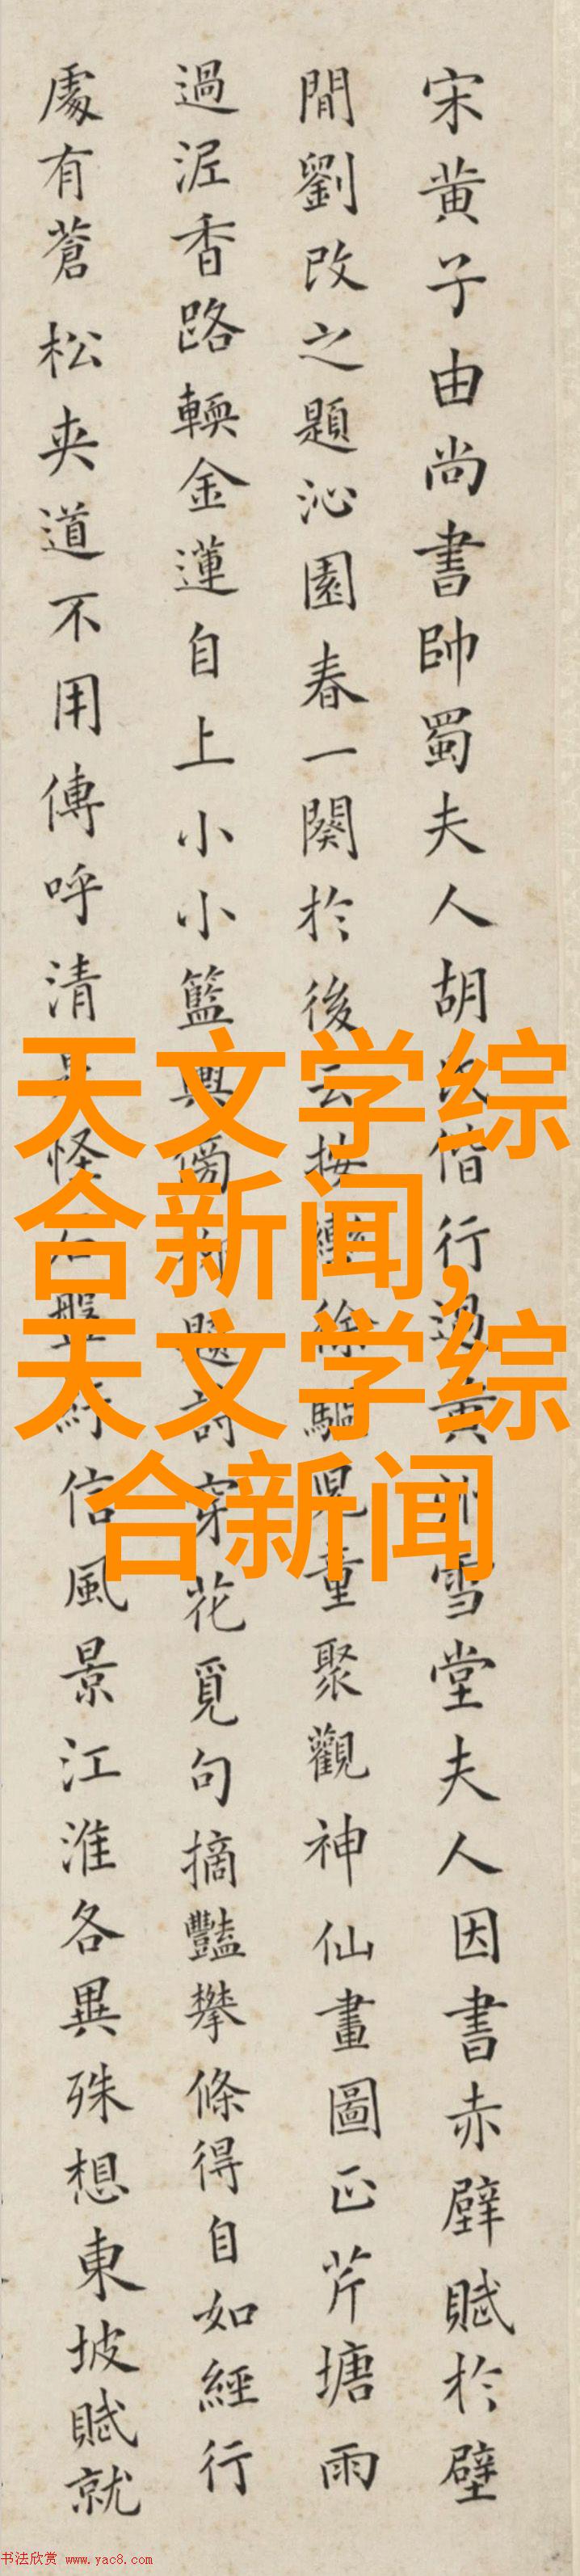 宋黄子由尚書帥蜀夫人胡偕行過黄州雪堂夫人因書赤壁賦於壁
間劉改之題沁園春一闋於後云按轡徐驅兒童聚觀神仙畫圖正芹塘雨
過泥香路輭金蓮自上小小籃輿傍柳題詩穿花覓句摘豔攀條得自如經行
處有蒼松夾道不用傳呼清泉怪石盤紆信風景江淮各異殊想東坡賦就
天文学综
合新闻,
天文学综
合新闻
书法欣赏 www.yac8.com